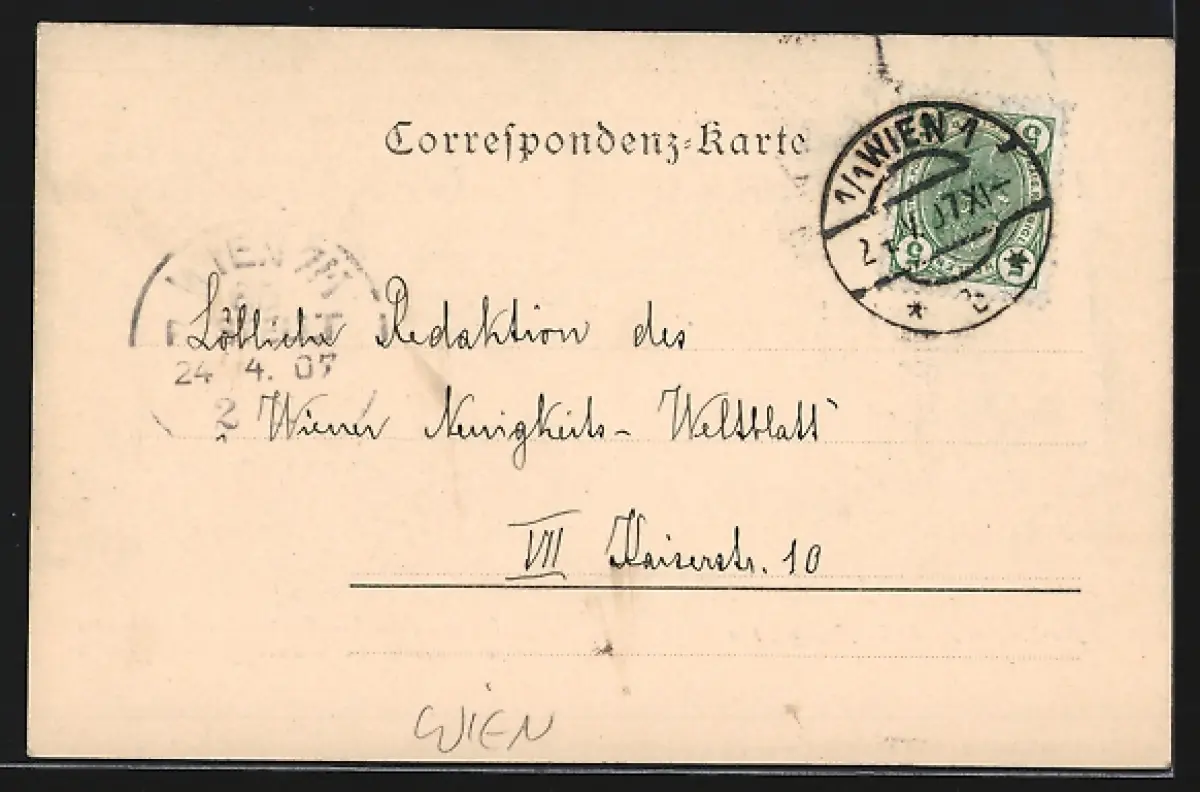 Correspondenz-Karte
1/1 WIEN 1
5
5
5
WIEN
24 4. 07
2
Löbliche Redaktion des
Wiener Neuigkeits- Weltblatt
VII Kaiserstr. 10
WIEN